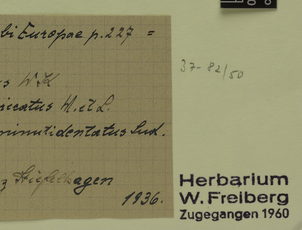 bi Europae p. 227 =
37- 82/50
s W K
icatus M. et L.
minutidentatus Sud.
z Stiefelhagen
1936.
Herbarium
W. Freiberg
Zugegangen 1960